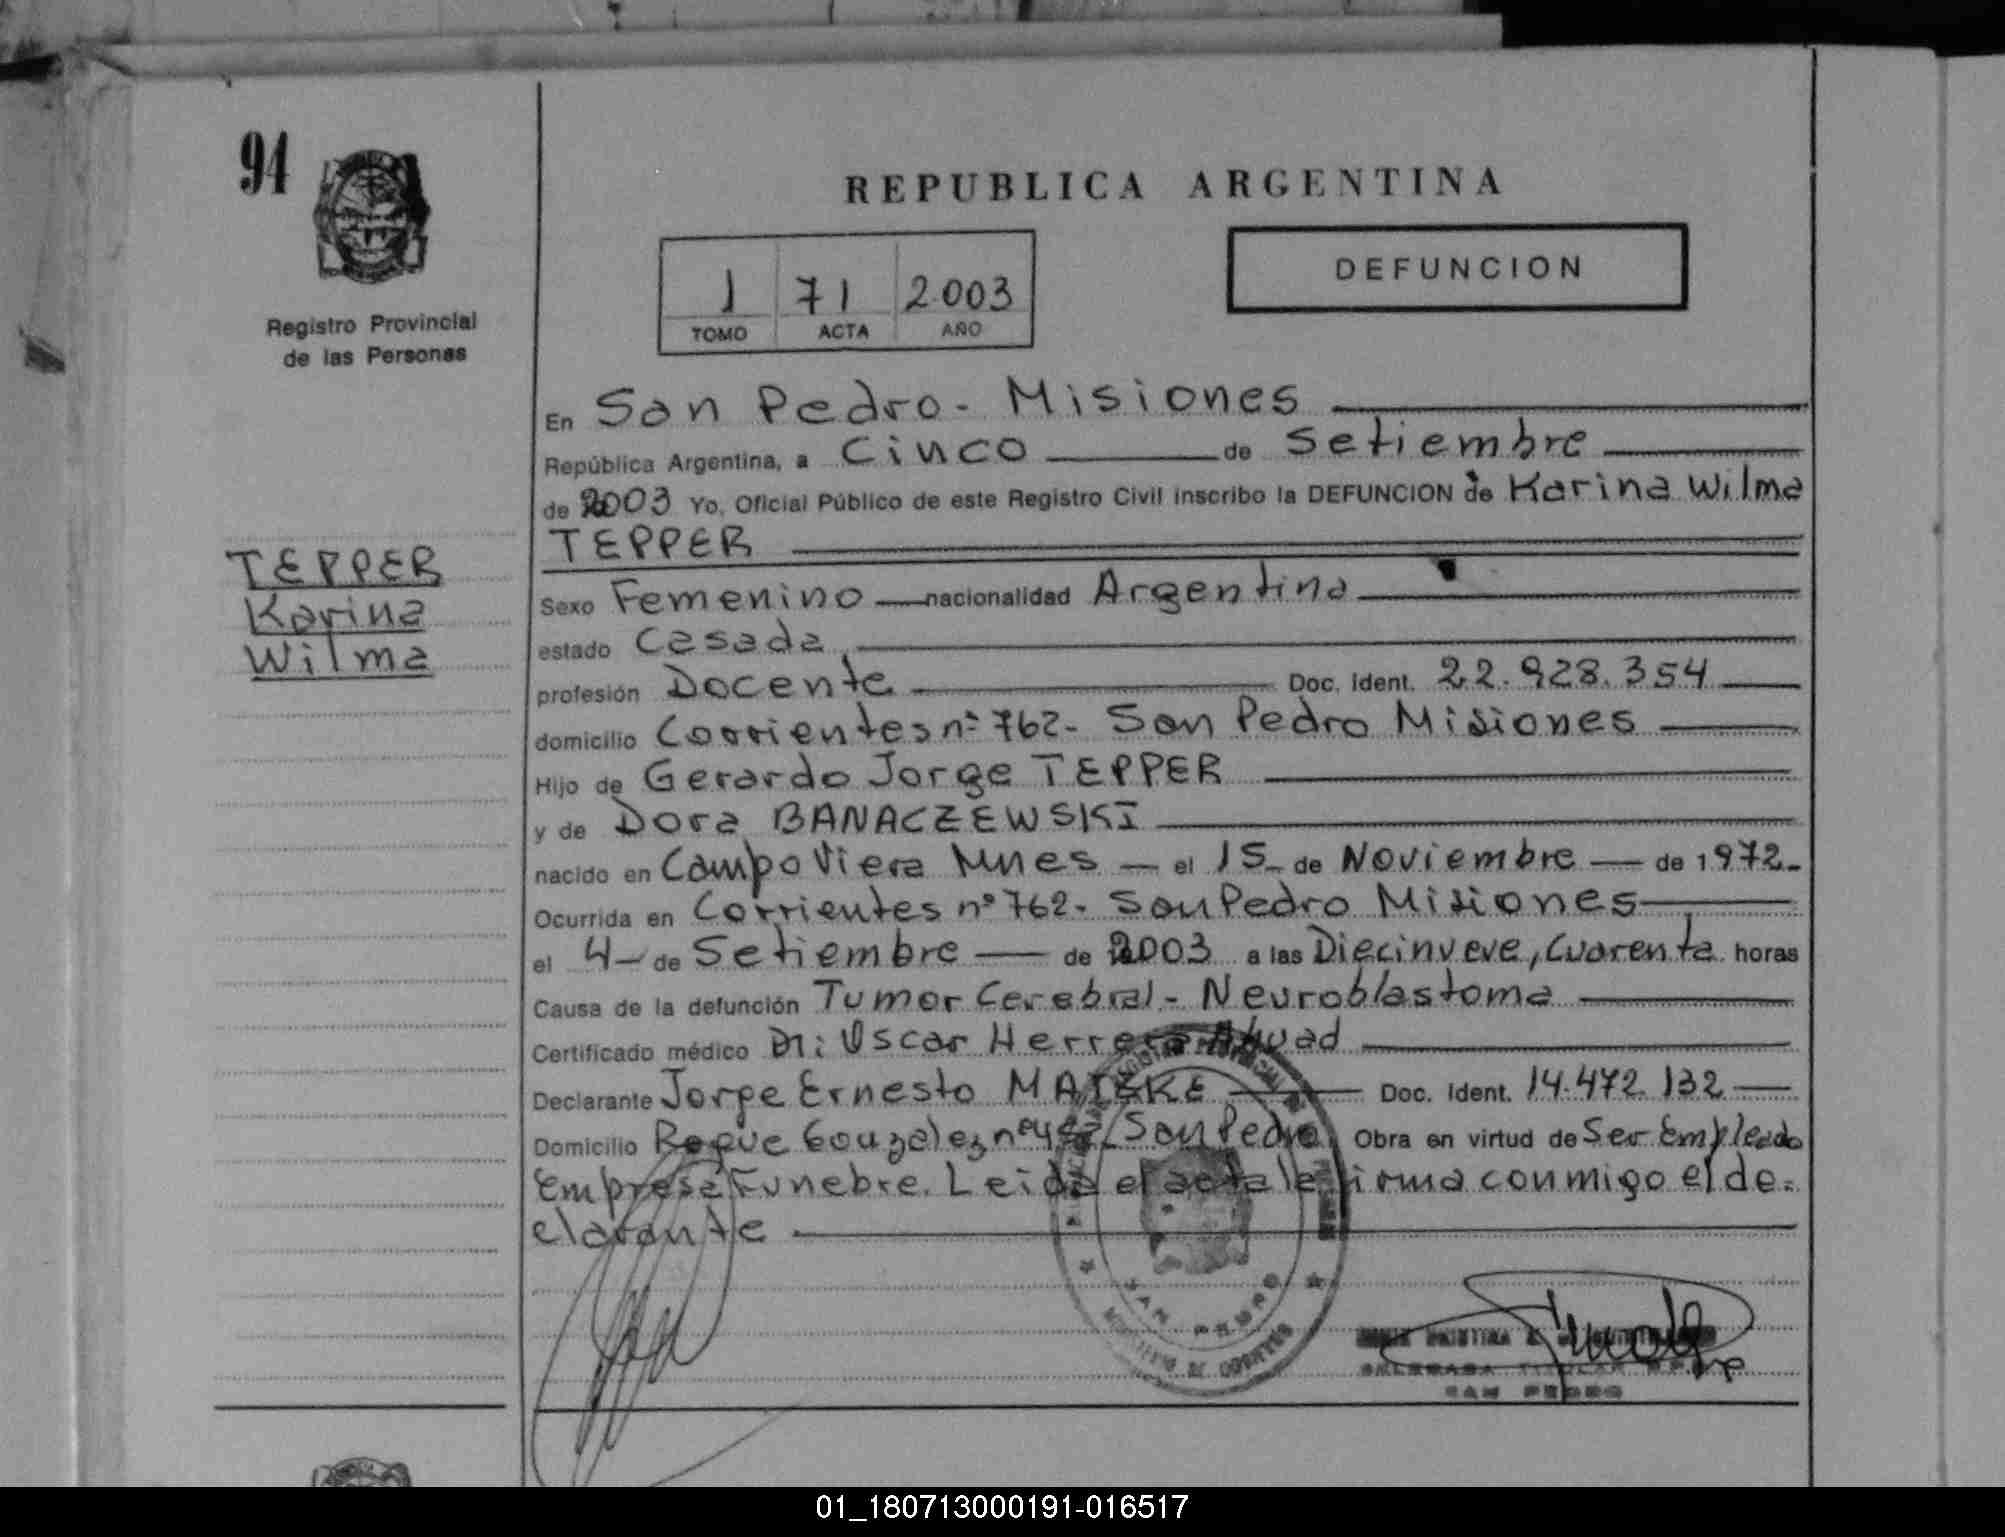 94
REPUBLICA ARGENTINA
Registro Provincial
de las Personas
1 71 2.003
TOMO ACTA AÑO
DEFUNCION
TEPPER
Karina
Wilma
En San Pedro - Misiones
República Argentina, a Cinco de Setiembre
de 2003 Yo, Oficial Público de este Registro Civil inscribo la DEFUNCION de Karina Wilma
TEPPER
Sexo Femenino nacionalidad Argentina
estado Casada
profesión Docente Doc. Ident. 22.928.354
domicilio Corrientes nº 762- San Pedro Misiones
Hijo de Gerardo Jorge TEPPER
y de Dora BANACZEWSKI
nacido en Campo Viera Mnes el 15 de Noviembre de 1972-
Ocurrida en Corrientes nº 762- San Pedro Misiones
el 4 de Setiembre de 2003 a las Diecinueve, Cuarenta horas
Causa de la defunción Tumor Cerebral - Neuroblastoma
Certificado médico Dr: Oscar Herrera Ahuad
Declarante Jorge Ernesto Doc. Ident. 14.472.132
Domicilio Roque Gonzalez San Pedro Obra en virtud de Ser Empleado
Empresa Funebre. Leida el acta la firma conmigo el de-
clarante
SAN PEDRO
DELEGADA TITULAR
SAN PEDRO
01_180713000191-016517